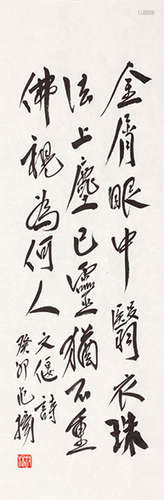 金屑眼中翳衣珠
法上塵己靈猶不重
佛視為何人
文偃詩
癸卯